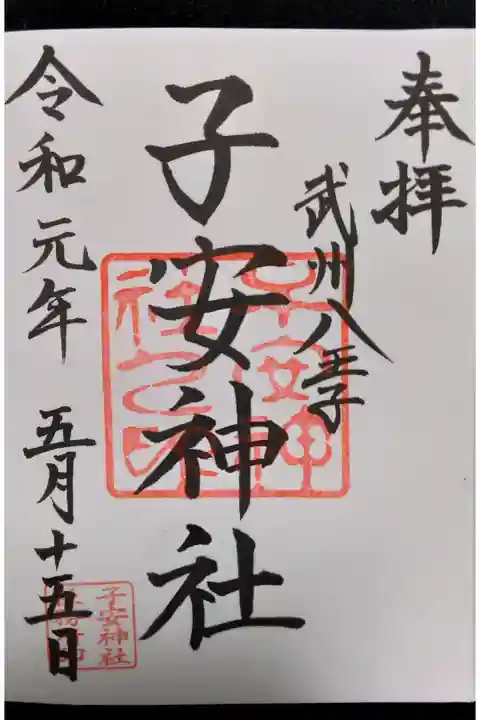 奉拝
武州八王子
子安神社
令和元年 五月十五日
子安神
社之印
子安神社
社務所印